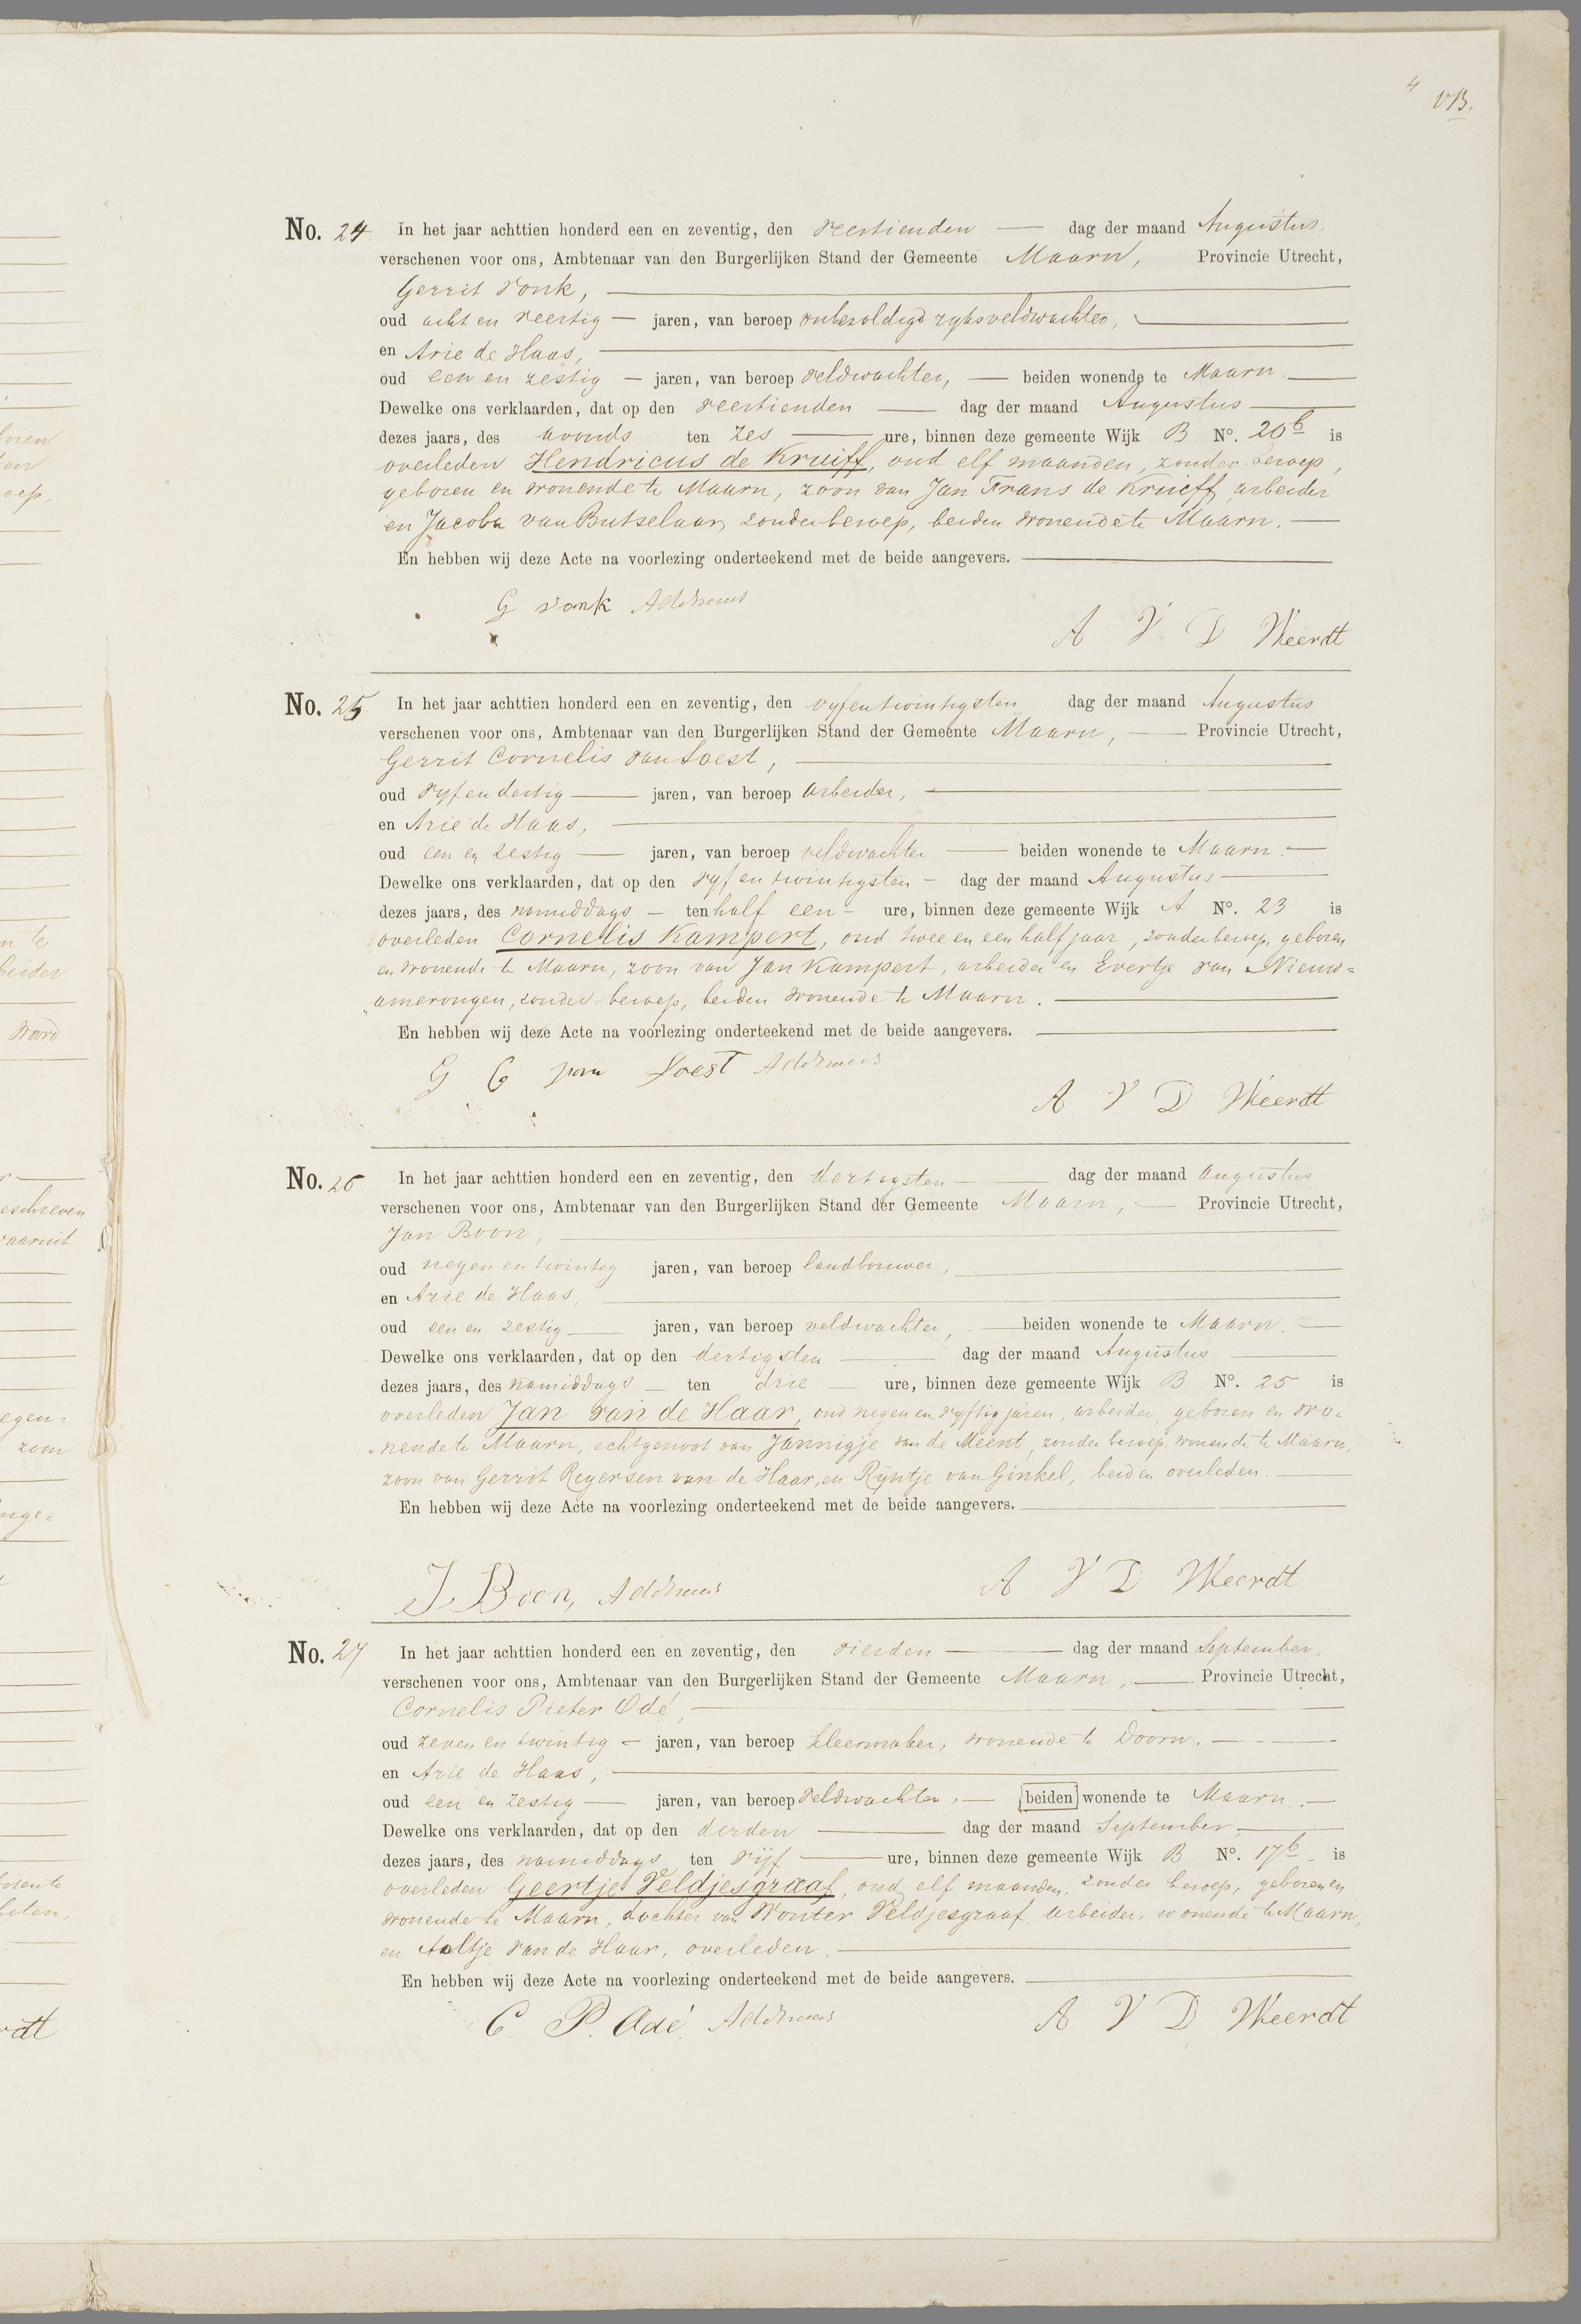 4
VB.
No. 24 In het jaar achttien honderd een en zeventig, den veertienden dag der maand Augustus
verschenen voor ons, Ambtenaar van den Burgerlijken Stand der Gemeente Maarn, Provincie Utrecht,
Gerrit Vonk,
oud acht en veertig jaren, van beroep onbezoldigd rijksveldwachter,
en Arie de Haas,
oud een en zestig jaren, van beroep veldwachter, beiden wonende te Maarn.
Dewelke ons verklaarden, dat op den veertienden dag der maand Augustus
dezes jaars, des avonds ten zes ure, binnen deze gemeente Wijk B No. 20b is
overleden Hendricus de Kruiff, oud elf maanden, zonder beroep,
geboren en wonende te Maarn, zoon van Jan Frans de Kruiff, arbeider
en Jacoba van Butselaar, zonder beroep, beiden wonende te Maarn.
En hebben wij deze Acte na voorlezing onderteekend met de beide aangevers.
G vonk
A V D Weerdt
No. 25 In het jaar achttien honderd een en zeventig, den vyfentwintigsten dag der maand Augustus
verschenen voor ons, Ambtenaar van den Burgerlijken Stand der Gemeente Maarn, Provincie Utrecht,
Gerrit Cornelis van Soest,
oud vyf en dertig jaren, van beroep arbeider,
en Arie de Haas,
oud een en zestig jaren, van beroep veldwachter beiden wonende te Maarn.
Dewelke ons verklaarden, dat op den vyf en twintigsten dag der maand Augustus
dezes jaars, des namiddags ten half een ure, binnen deze gemeente Wijk A No. 23 is
overleden Cornelis Kampert, oud twee en een half jaar, zonder beroep, geboren
en wonende te Maarn, zoon van Jan Kampert, arbeider en Evertje van Nieuw=
„amerongen, zonder beroep, beiden wonende te Maarn.
En hebben wij deze Acte na voorlezing onderteekend met de beide aangevers.
G C van Soest
A V D Weerdt
No. 26 In het jaar achttien honderd een en zeventig, den dertigsten dag der maand Augustus
verschenen voor ons, Ambtenaar van den Burgerlijken Stand der Gemeente Maarn, Provincie Utrecht,
Jan Boon,
oud negen en twintig jaren, van beroep landbouwer,
en Arie de Haas,
oud een en zestig jaren, van beroep veldwachter, beiden wonende te Maarn.
Dewelke ons verklaarden, dat op den dertigsten dag der maand Augustus
dezes jaars, des namiddags ten drie ure, binnen deze gemeente Wijk B No. 25 is
overleden Jan van de Haar, oud negen en vyftig jaren, arbeider, geboren en wo=
„nende te Maarn, echtgenoot van Jannigje van de Meent, zonder beroep, wonende te Maarn,
zoon van Gerrit Reyersen van de Haar, en Rijntje van Ginkel, beiden overleden.
En hebben wij deze Acte na voorlezing onderteekend met de beide aangevers.
J. Boon,
A V D Weerdt
No. 27 In het jaar achttien honderd een en zeventig, den vierden dag der maand September,
verschenen voor ons, Ambtenaar van den Burgerlijken Stand der Gemeente Maarn, Provincie Utrecht,
Cornelis Pieter Odé,
oud zeven en twintig jaren, van beroep kleermaker, wonende te Doorn.
en Arie de Haas,
oud een en zestig jaren, van beroep veldwachter, beiden wonende te Maarn.
Dewelke ons verklaarden, dat op den derden dag der maand September,
dezes jaars, des namiddags ten vijf ure, binnen deze gemeente Wijk B No. 17b is
overleden Geertje Veldjesgraaf, oud elf maanden, zonder beroep, geboren en
wonende te Maarn, dochter van Wouter Veldjesgraaf, arbeider, wonende te Maarn,
en Aaltje van de Haar, overleden.
En hebben wij deze Acte na voorlezing onderteekend met de beide aangevers.
C. P. Odé
A V D Weerdt